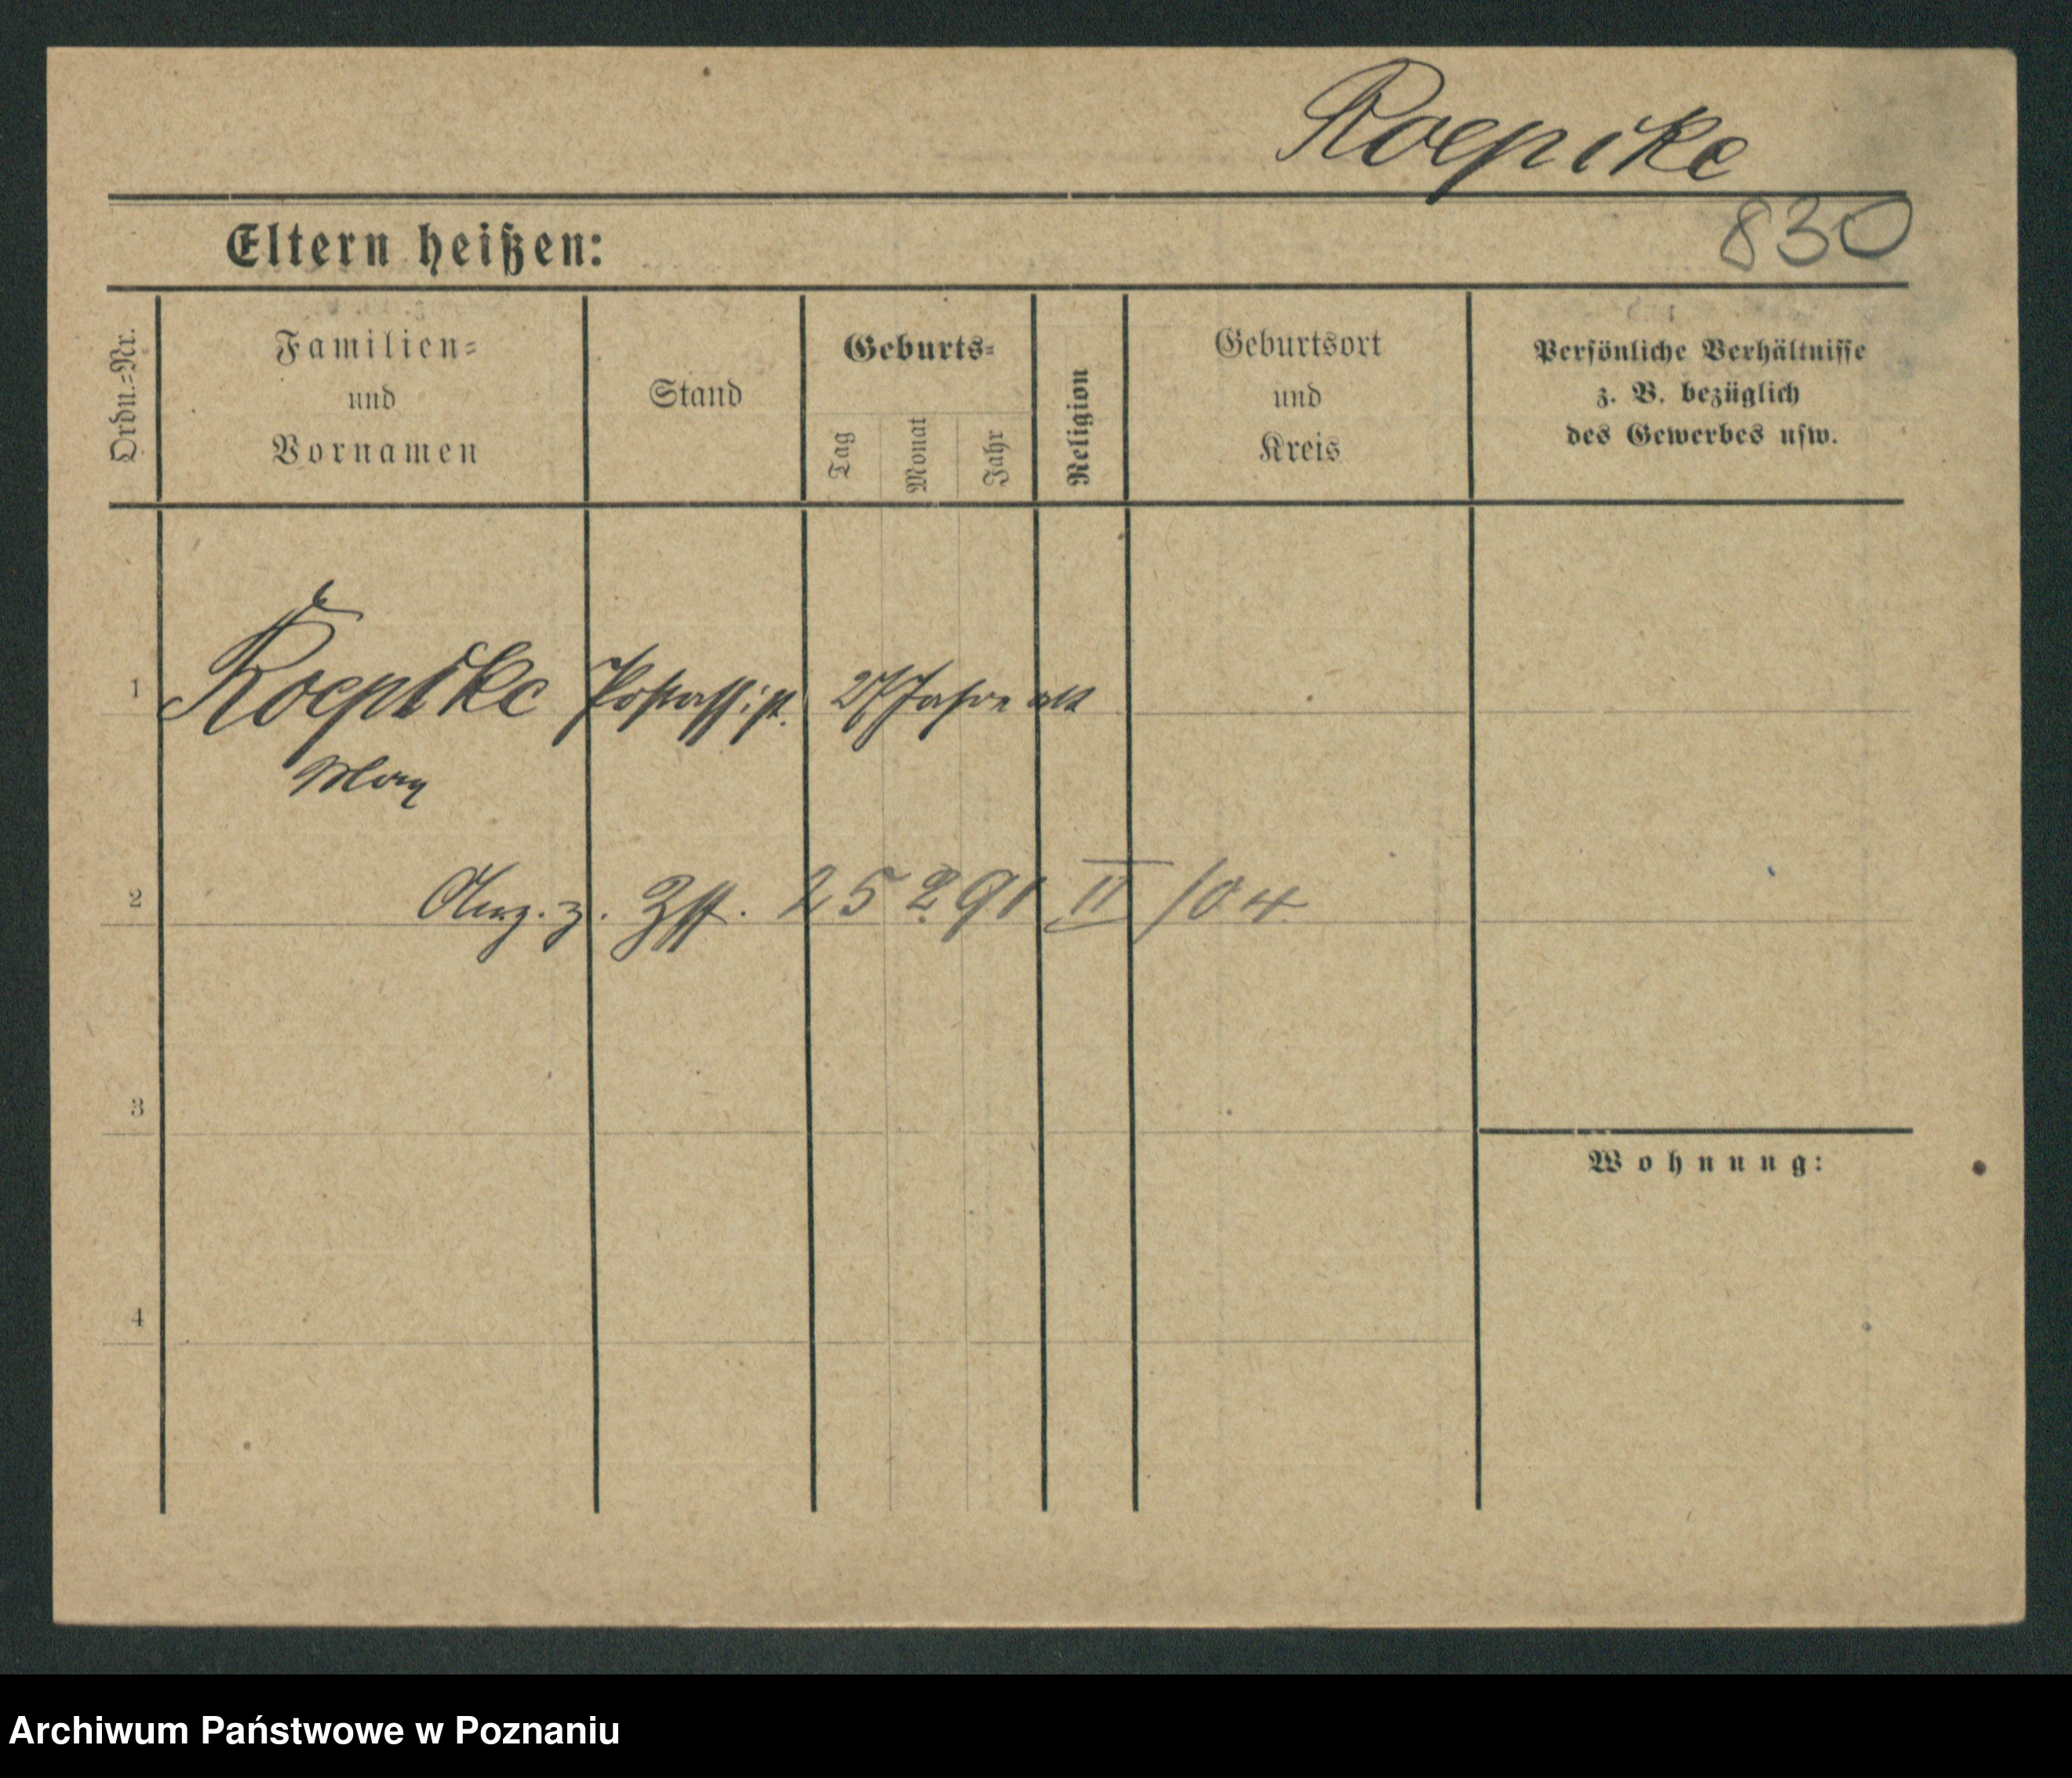 Roepike
830
Eltern heißen:
Ordn.=Nr.
Familien=
und
Vornamen
Stand
Geburts=
Tag
Monat
Jahr
Religion
Geburtsort
und
Kreis
Persönliche Verhältnisse
z. B. bezüglich
des Gewerbes usw.
1
Roepike Postassist. 27 Jahre alt
Max
2
z. 25291 II/04
3
Wohnung:
4
Archiwum Państwowe w Poznaniu